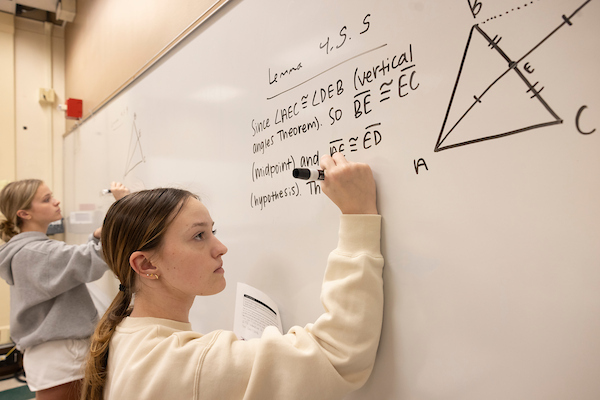 Lemma 4.5.5
Since ∠AEC ≅ ∠DEB (vertical
angles Theorem). So BE ≅ EC
(midpoint) and AE ≅ ED
(hypothesis). Th
B
E
A
C